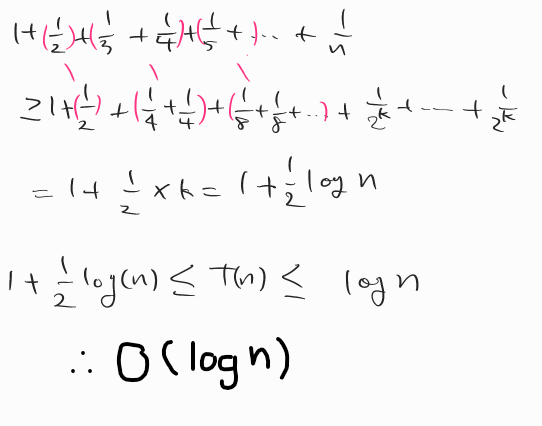 1+(1/2)+(1/3 + 1/4)+(1/5 + )... + 1/n
≥ 1+(1/2) + (1/4 + 1/4)+(1/8 + 1/8 + ...) + 1/2^k + --- + 1/2^k
= 1 + 1/2 × k = 1 + 1/2 log n
1 + 1/2 log(n) ≤ T(n) ≤ log n
∴ O(log n)